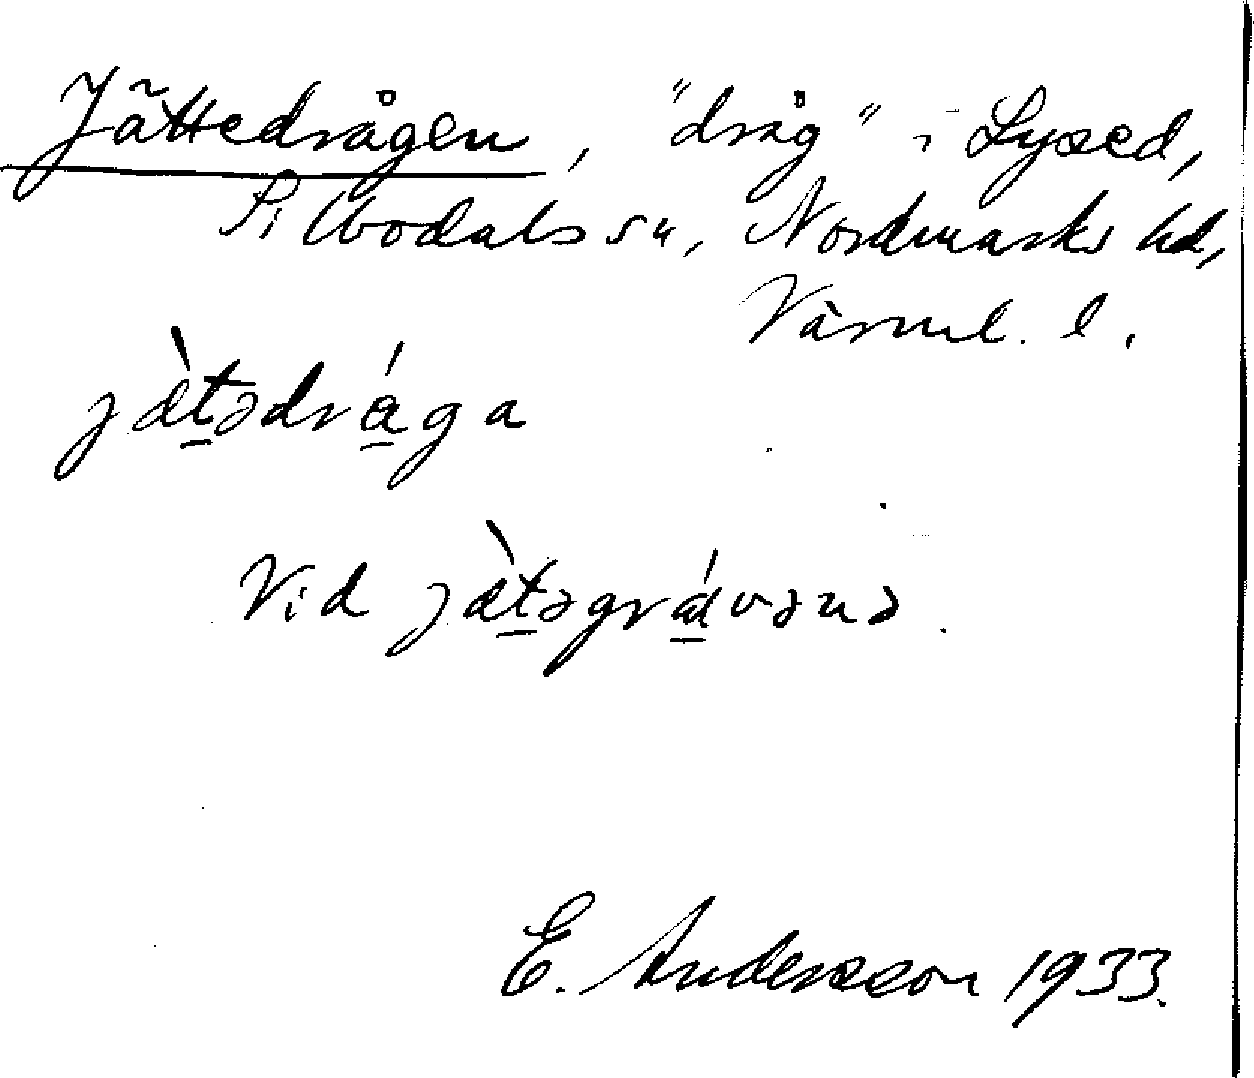 Jättedrågen, "dråg" i Lysed,
Silbodals sn, Nordmarks hd,
Värml. l.
jæ̀t̠ədrá̠ga
Vid jæ̀t̠əgrá̠vənə.
E. Andersson 1933.